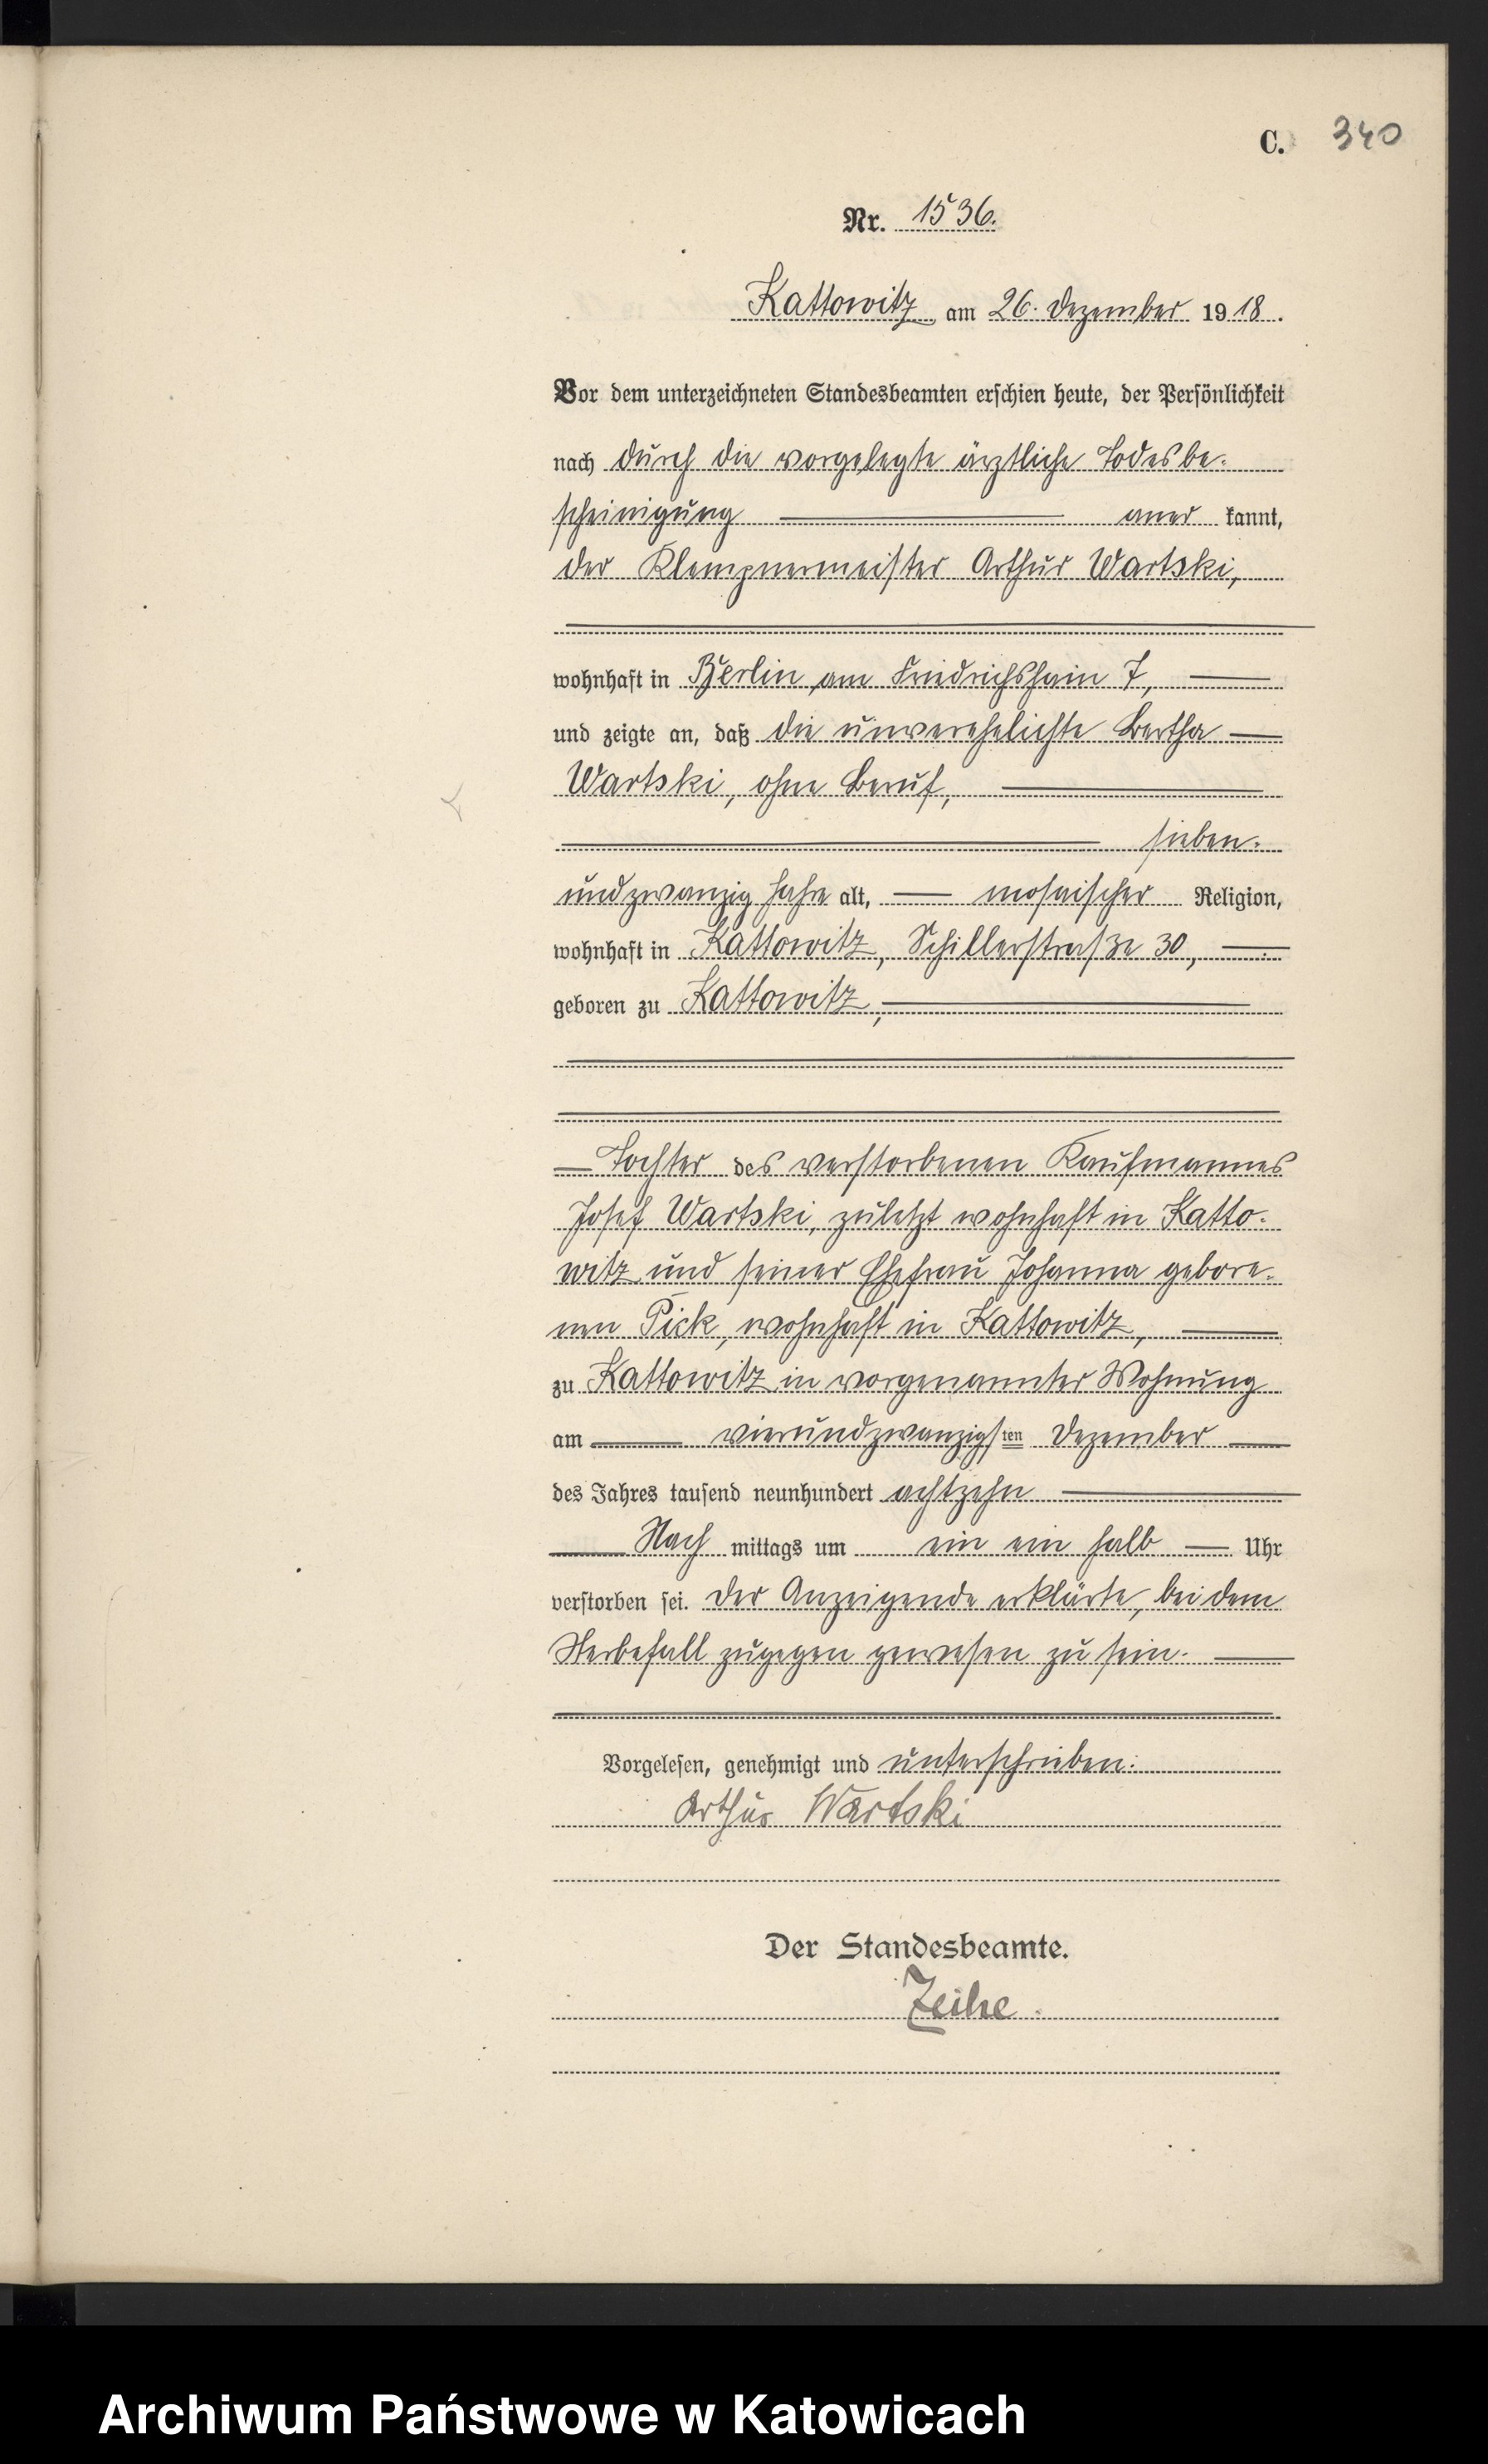 C. 340
Nr. 1536.
Kattowitz am 26. Dezember 1918.
Vor dem unterzeichneten Standesbeamten erschien heute, der Persönlichkeit
nach durch die vorgelegte ärztliche Todesbe-
scheinigung aner kannt,
der Klempnermeister Arthur Wartski,
wohnhaft in Berlin, am Friedrichshain 7,
und zeigte an, daß die unverehelichte Bertha
Wartski, ohne Beruf,
sieben-
undzwanzig Jahre alt, mosaischer Religion,
wohnhaft in Kattowitz, Schillerstraße 30,
geboren zu Kattowitz,
Tochter des verstorbenen Kaufmannes
Josef Wartski, zuletzt wohnhaft in Katto-
witz und seiner Ehefrau Johanna gebore-
nen Pick, wohnhaft in Kattowitz,
zu Kattowitz in vorgenannter Wohnung
am vierundzwanzigsten Dezember
des Jahres tausend neunhundert achtzehn
Nach mittags um ein ein halb Uhr
verstorben sei. Der Anzeigende erklärte, bei dem
Sterbefall zugegen gewesen zu sein.
Vorgelesen, genehmigt und unterschrieben:
Arthur Wartski
Der Standesbeamte.
Zeihe.
Archiwum Państwowe w Katowicach